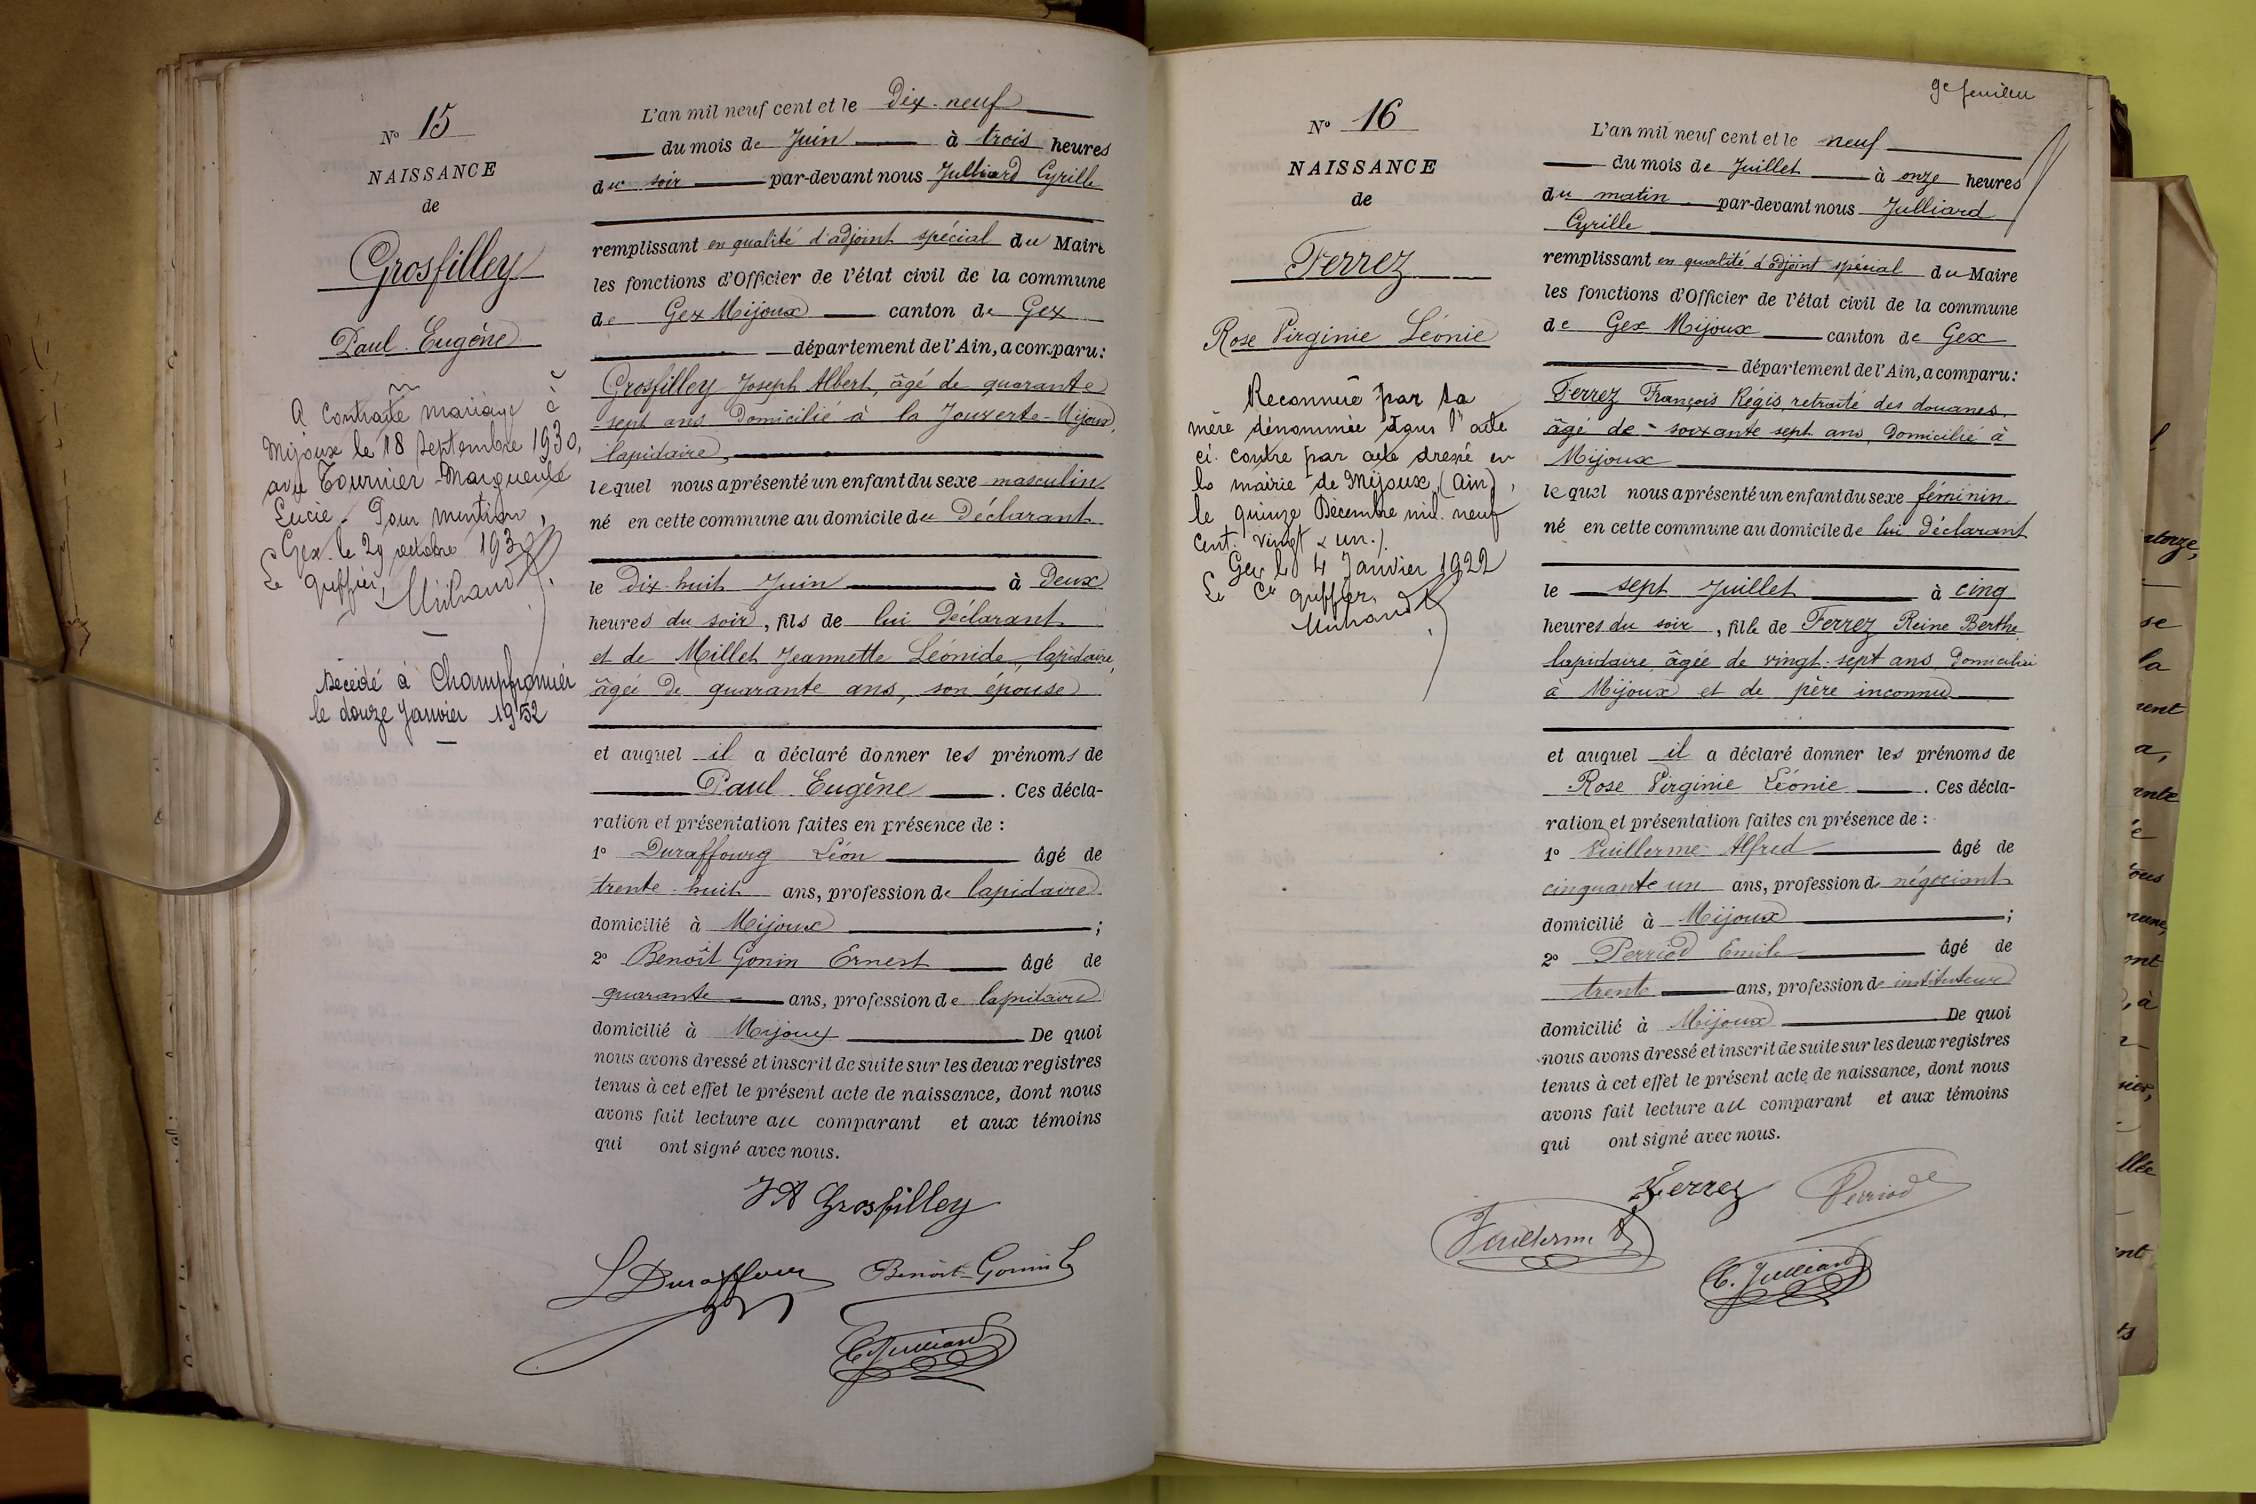 N° 15
NAISSANCE
de
Grosfilley
Paul Eugène
A contracté mariage à
Mijoux le 18 septembre 1930,
avec Tournier Marguerite
Lucie. Pour mention,
Gex le 29 octobre 1930
Le greffier,
Décédé à Champfromier
le douze Janvier 1952
L'an mil neuf cent et le Dix-neuf
du mois de Juin à trois heures
du soir par-devant nous Julliard Cyrille
remplissant en qualité d'adjoint spécial du Maire
les fonctions d'Officier de l'état civil de la commune
de Gex Mijoux canton de Gex
département de l'Ain, a comparu:
Grosfilley Joseph Albert, âgé de quarante
sept ans Domicilié à la Jouverte-Mijoux,
lapidaire,
lequel nous a présenté un enfant du sexe masculin
né en cette commune au domicile du Déclarant
le Dix-huit Juin à Deux
heures du soir, fils de lui Déclarant
et de Millet Jeannette Léonide, lapidaire,
âgée de quarante ans, son épouse
et auquel il a déclaré donner les prénoms de
Paul Eugène. Ces décla-
ration et présentation faites en présence de :
1° Duraffourg Léon âgé de
trente-huit ans, profession de lapidaire
domicilié à Mijoux ;
2° Benoît Gonin Ernest âgé de
quarante ans, profession de lapidaire
domicilié à Mijoux De quoi
nous avons dressé et inscrit de suite sur les deux registres
tenus à cet effet le présent acte de naissance, dont nous
avons fait lecture au comparant et aux témoins
qui ont signé avec nous.
JA Grosfilley
L Duraffourg Benoit-Gonin E
C. Julliard
9e feuillet
N° 16
NAISSANCE
de
Ferrez
Rose Virginie Léonie
Reconnue par sa
mère dénommée dans l'acte
ci-contre par acte dressé en
la mairie de Mijoux (Ain),
le quinze Décembre mil neuf
cent vingt & un./.
Gex le 4 Janvier 1922
Le Cis greffier
L'an mil neuf cent et le neuf
du mois de Juillet à onze heures
du matin par-devant nous Julliard
Cyrille
remplissant en qualité d'adjoint spécial du Maire
les fonctions d'Officier de l'état civil de la commune
de Gex Mijoux canton de Gex
département de l'Ain, a comparu:
Ferrez François Régis, retraité des douanes,
âgé de soixante sept ans, Domicilié à
Mijoux
lequel nous a présenté un enfant du sexe féminin
né en cette commune au domicile de lui déclarant
le sept Juillet à cinq
heures du soir, fille de Ferrez Reine Berthe,
lapidaire, âgée de vingt-sept ans, Domiciliée
à Mijoux et de père inconnu
et auquel il a déclaré donner les prénoms de
Rose Virginie Léonie. Ces décla-
ration et présentation faites en présence de :
1° Vuillerme Alfred âgé de
cinquante un ans, profession de négociant
domicilié à Mijoux ;
2° Perriod Emile âgé de
trente ans, profession de instituteur
domicilié à Mijoux De quoi
nous avons dressé et inscrit de suite sur les deux registres
tenus à cet effet le présent acte de naissance, dont nous
avons fait lecture au comparant et aux témoins
qui ont signé avec nous.
Ferrez Perriod e
Vuillerme A
C. Julliard